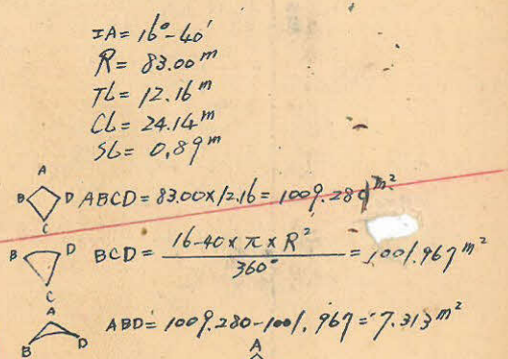 IA= 16°-40'
R= 83.00 m
TL= 12.16 m
CL= 24.14 m
SL= 0,89 m
A
B D ABCD = 83.00×12.16 = 1009.280 m²
C
B D BCD = 16-40×π×R² / 360° = 1001.967 m²
C
A
B D ABD= 1009.280-1001.967=7.313 m²
A